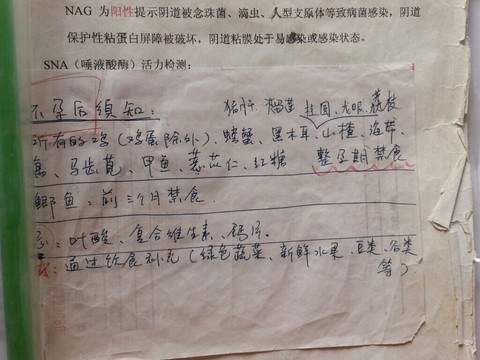 NAG 为阳性提示阴道被念珠菌、滴虫、人型支原体等致病菌感染，阴道
保护性粘蛋白屏障被破坏，阴道粘膜处于易感染或感染状态。
SNA（唾液酸酶）活力检测：
孕后须知：
猪肝 桂圆、龙眼、荔枝
所有的鸡（鸡蛋除外）、螃蟹、黑木耳、山楂、海带、
马齿苋、甲鱼、薏苡仁、红糖 整孕期禁食
鲫鱼：前三个月禁食
：叶酸、复合维生素、钙片。
：通过饮食补充（绿色蔬菜、新鲜水果、豆类、谷类
等）